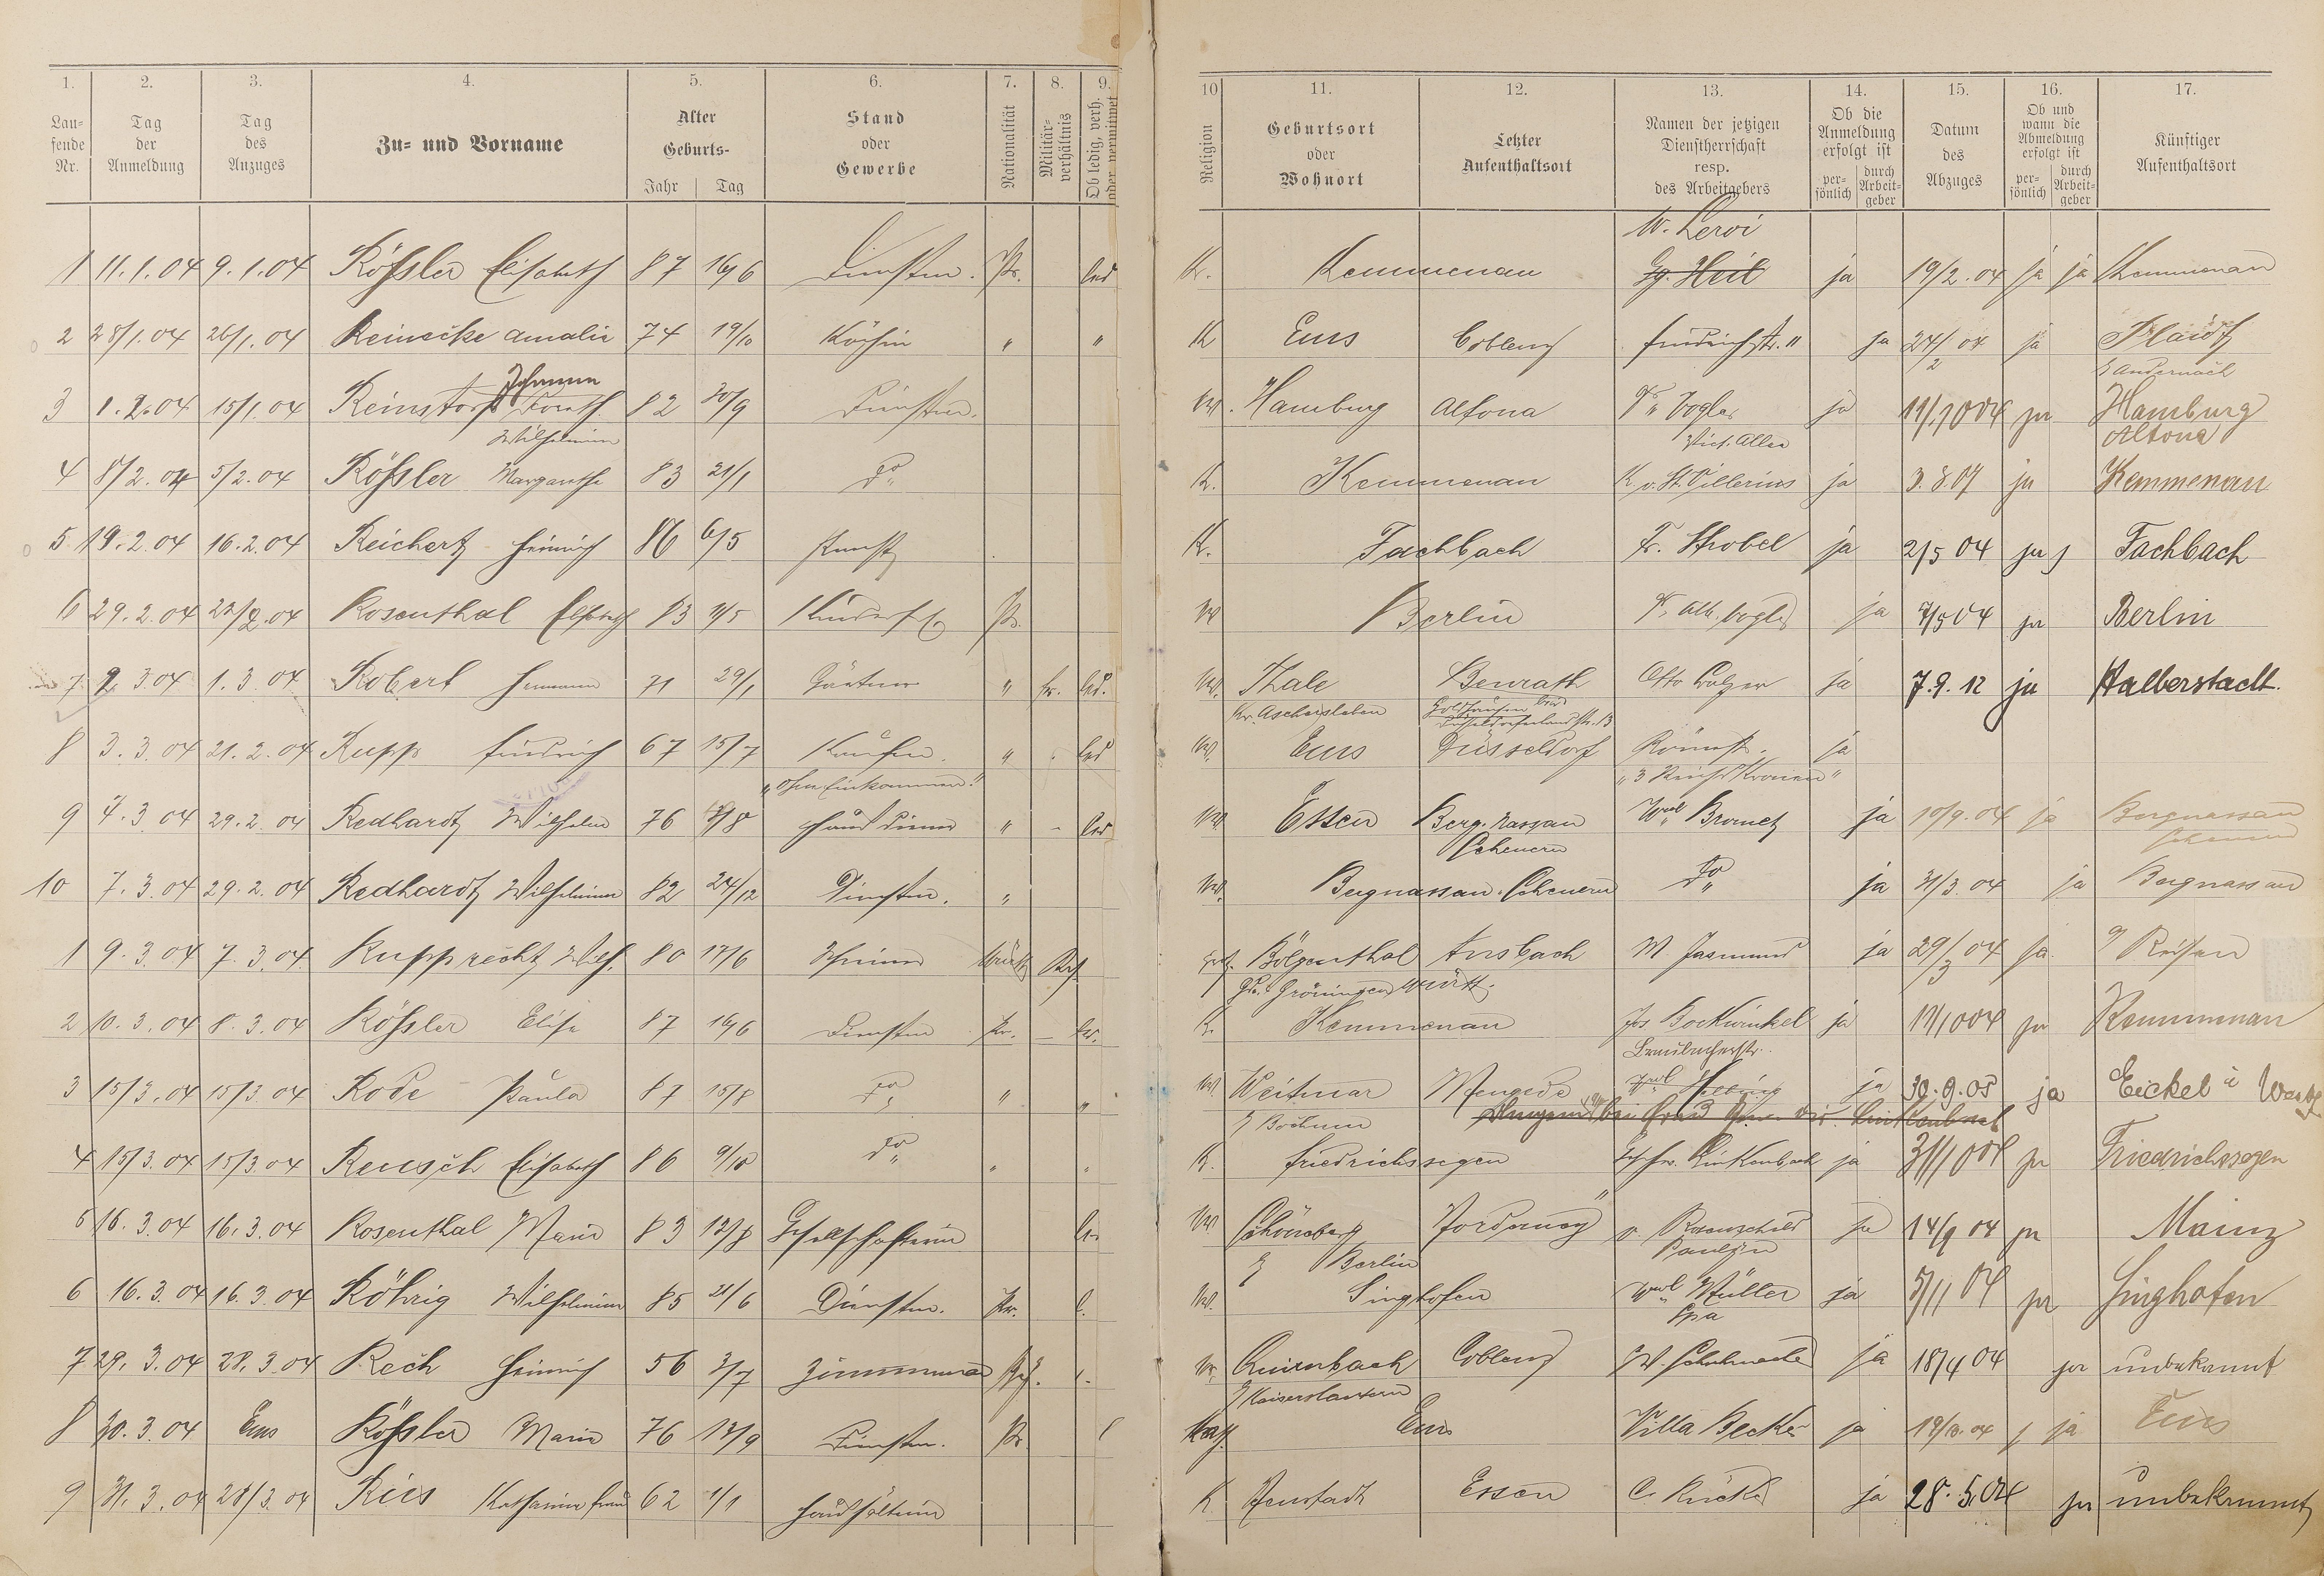 1. 2. 3. 4. 5. 6. 7. 8. 9. 10 11. 12. 13. 14. 15. 16. 17.
Lau-
fende
Nr.
Tag
der
Anmeldung
Tag
des
Anzuges
Zu- und Vorname
Alter
Geburts-
Jahr Tag
Stand
oder
Gewerbe
Nationalität
Militär-
verhältnis
Ob ledig, verh.
oder verwitwet
Religion
Geburtsort
oder
Wohnort
Letzter
Aufenthaltsort
Namen der jetzigen
Dienstherrschaft
resp.
des Arbeitgebers
Ob die
Anmeldung
erfolgt ist
per-
sönlich
durch
Arbeit-
geber
Datum
des
Abzuges
Ob und
wann die
Abmeldung
erfolgt ist
per-
sönlich
durch
Arbeit-
geber
Künftiger
Aufenthaltsort
W. Leroi
1 11.1.04 9.1.04 Rößler Elisabeth 87 16/6 Dienstm. Pr. led K. Kemmenau Gg. Heil ja 19/2.04 ja ja Kemmenau
2 28/1.04 26/1.04 Reinecke Amalie 74 19/10 Köchin " " K Ems Coblenz Friedrichstr. 11 ja 24/2 04 ja Plaidt
b/ Andernach
Johanna
3 1.2.04 15/1.04 Reinstorf Doroth. 82 30/9 Dienstm. Hamburg Altona Vogler ja 11/10 04 ja Hamburg
Wilhelmine Vict. Allee Altona
4 8/2.04 5/2.04 Rößler Margarethe 83 21/1 do K. Kemmenau ja ja Kemmenau
5 19.2.04 16.2.04 Reichert Heinrich 86 6/5 K. Fachbach Fr. Strobel ja 2/5 04 ja Fachbach
6 29.2.04 Rosenthal Elisabeth 83 Pr. Berlin Alb. Vogler ja 7/5 04 ja Berlin
7 2.3.04 1.3.04 Robert Hermann 71 29/1 Gärtner " led. Thale Benrath Otto Balzer ja 7.9.12 ja Halberstadt.
Kr. Aschersleben
8 3.3.04 21.2.04 Rupp Friedrich 67 15/7 Kaufm. " led Ems Düsseldorf Römerstr. ja
"ohne Einkommen" "3 Reichskronen"
9 4.3.04 29.2.04 Redhardt Wilhelm 76 Hausdiener " - led Essen Berg. Nassau Wwe Brometz ja 10/9.04 ja Bergnassau
Scheuern Scheuern
10 7.3.04 29.2.04 Redhardt Wilhelmine 82 24/12 Dienstm. " Bergnassau-Scheuern do ja 31/3.04 ja Bergnassau
1 9.3.04 7.3.04 Rupprecht Wilh. 80 17/6 Württ Bölgenthal Ansbach W. Jasmund ja 29/3 04 ja a/ Reisen
Gde. Gröningen Württ.
2 10.3.04 8.3.04 Rößler Elise 87 16/6 Dienstm Pr. - K. Kemmenau Jos. Bockwinkel ja 17/10 04 ja Kemmenau
3 15/3.04 15/3.04 Rode Paula 87 15/8 do " " Weitmar Mengede Wwe ja 30.9.05 ja Eickel i Westf
b/ Bochum
4 15/3.04 15/3.04 Reusch Elisabeth 86 9/10 do " " K. Friedrichssegen Linkenbach ja 31/10 04 ja Friedrichssegen
5 16.3.04 16.3.04 Rosenthal Marie 83 12/8 Gesellschafterin Schöneberg ja 14/9 04 ja Mainz
b/ Berlin
6 16.3.04 16.3.04 Röhrig Wilhelmine 85 21/6 Dienstm. Pr. l. Singhofen Wwe Müller ja 5/11 04 ja Singhofen
7 29.3.04 28.3.04 Rech Heinrich 56 3/7 Zimmermann Quirnbach Coblenz W. Schuhmacher ja 18/4 04 ja unbekannt
b/ Kaiserslautern
8 30.3.04 Ems Rößler Marie 76 12/9 Dienstm. Pr. l Kath. Ems Villa Becker ja ja Ems
9 31.3.04 28/3.04 Ries Katharina Frau 62 1/1 Haushälterin K Neustadt Essen C. Rücker ja 28.5.04 ja unbekannt